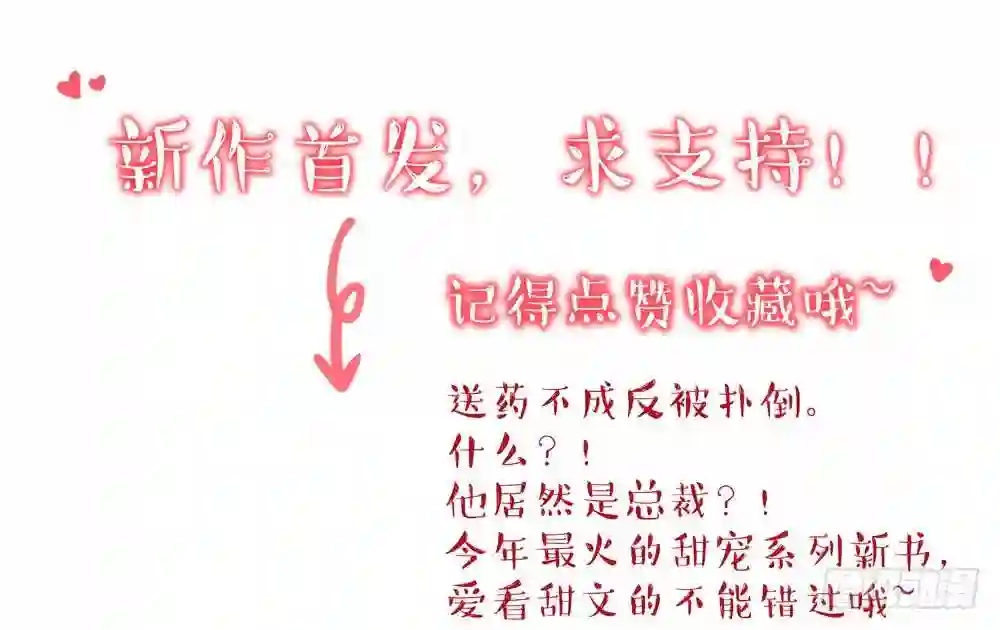 新作首发，求支持！！
记得点赞收藏哦~
送药不成反被扑倒。
什么？！
他居然是总裁？！
今年最火的甜宠系列新书，
爱看甜文的不能错过哦~